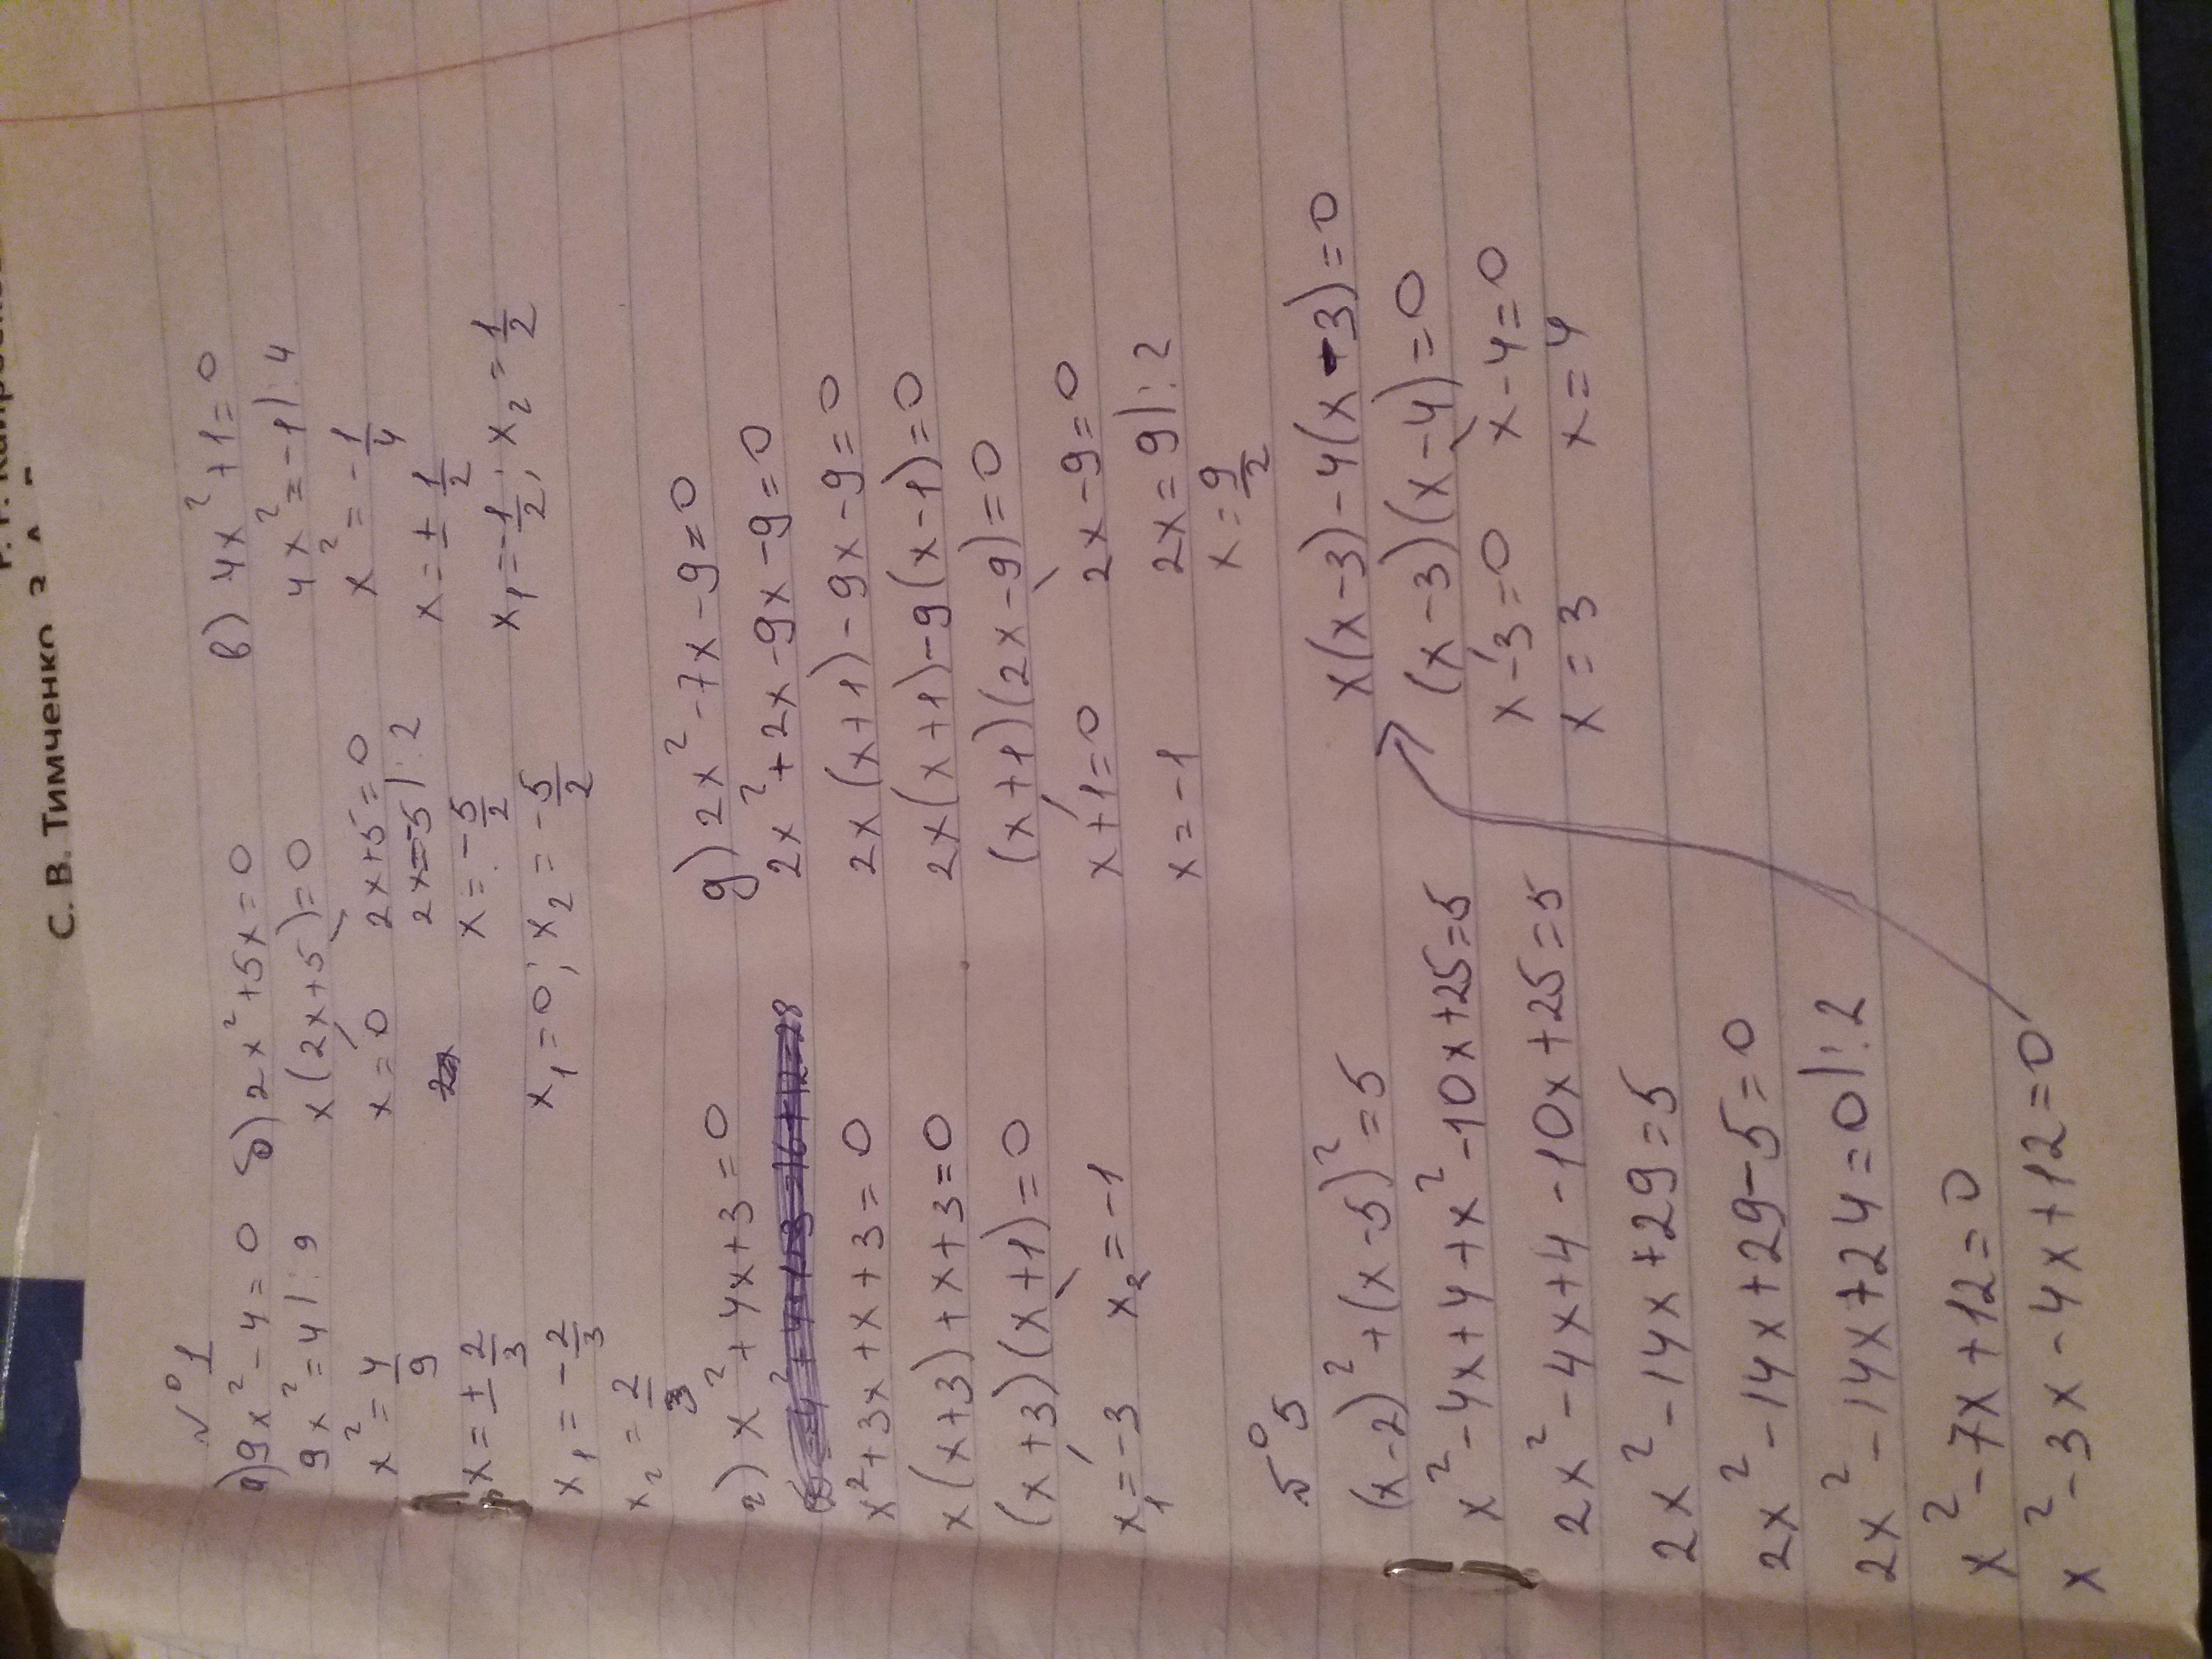 С. В. Тимченко
№1
а) 9x² - 4 = 0
9x² = 4 |: 9
x² = 4/9
x = ± 2/3
x₁ = - 2/3
x₂ = 2/3
б) 2x² + 5x = 0
x(2x + 5) = 0
x = 0 2x + 5 = 0
2x = -5 |: 2
x = - 5/2
x₁ = 0; x₂ = - 5/2
в) 4x² + 1 = 0
4x² = -1 |: 4
x² = - 1/4
x = ± 1/2
x₁ = - 1/2; x₂ = 1/2
г) x² + 4x + 3 = 0
x² + 3x + x + 3 = 0
x(x + 3) + x + 3 = 0
(x + 3)(x + 1) = 0
x₁ = -3 x₂ = -1
д) 2x² - 7x - 9 = 0
2x² + 2x - 9x - 9 = 0
2x(x + 1) - 9x - 9 = 0
2x(x + 1) - 9(x - 1) = 0
(x + 1)(2x - 9) = 0
x + 1 = 0 2x - 9 = 0
x = -1 2x = 9 |: 2
x = 9/2
№5
(x - 2)² + (x - 5)² = 5
x² - 4x + 4 + x² - 10x + 25 = 5
2x² - 4x + 4 - 10x + 25 = 5
2x² - 14x + 29 = 5
2x² - 14x + 29 - 5 = 0
2x² - 14x + 24 = 0 |: 2
x² - 7x + 12 = 0
x² - 3x - 4x + 12 = 0
x(x - 3) - 4(x - 3) = 0
(x - 3)(x - 4) = 0
x - 3 = 0 x - 4 = 0
x = 3 x = 4